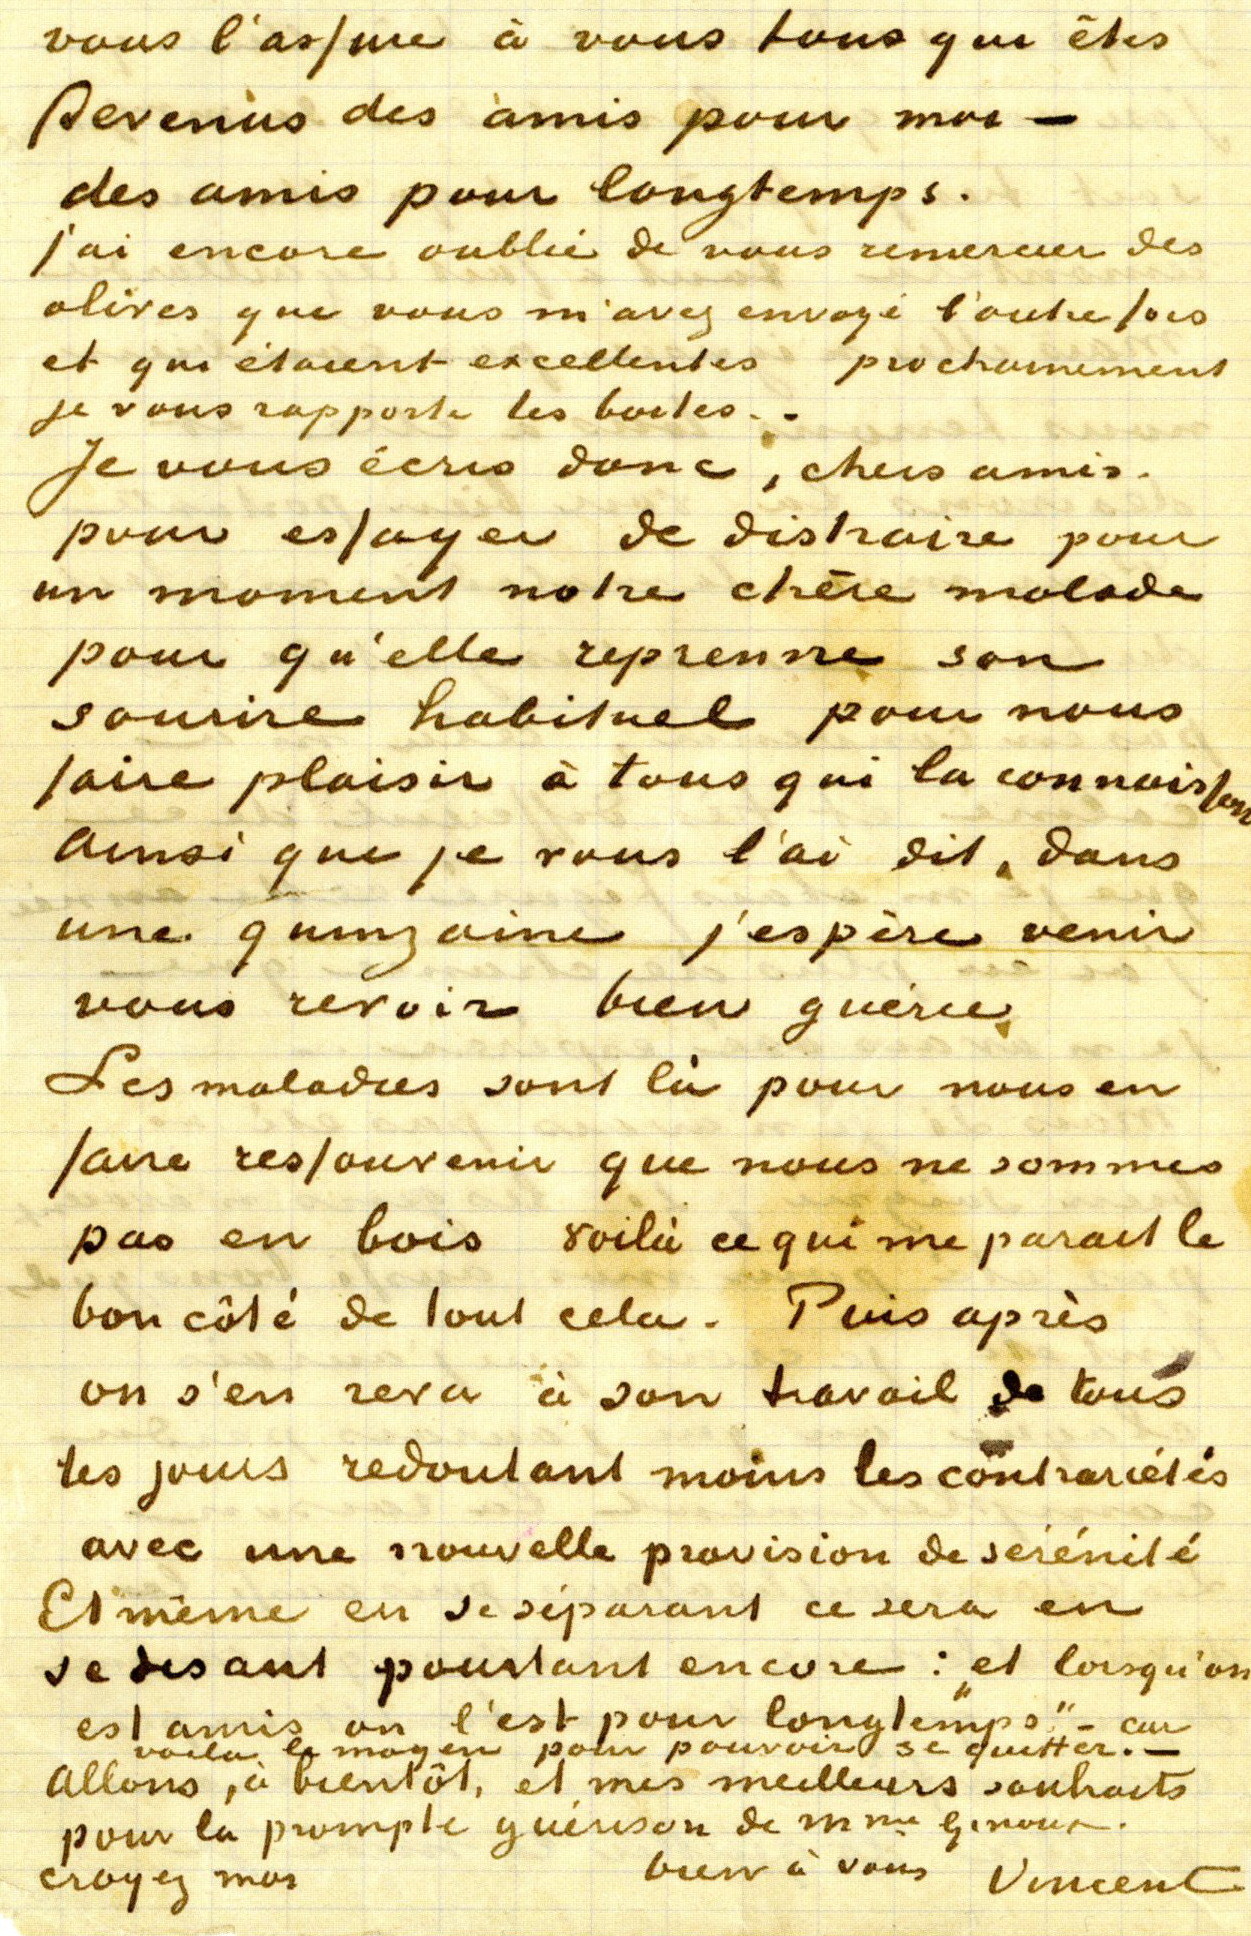 vous l'assure à vous tous qui êtes
devenus des amis pour moi —
des amis pour longtemps.
j'ai encore oublié de vous remercier des
olives que vous m'avez envoyé l'autre fois
et qui étaient excellentes prochainement
je vous rapporte les boites. -
Je vous écris donc, chers amis.
pour essayer de distraire pour
un moment notre chère malade
pour qu'elle reprenne son
sourire habituel pour nous
faire plaisir à tous qui la connaissent
Ainsi que je vous l'ai dit, dans
une quinzaine j'espère venir
vous revoir bien guérie
Les maladies sont là pour nous en
faire ressouvenir que nous ne sommes
pas en bois voilà ce qui me parait le
bon côté de tout cela. Puis après
on s'en reva à son travail de tous
les jours redoutant moins les contrariétés
avec une nouvelle provision de sérénité
Et même en se séparant ce sera en
se disant pourtant encore : "et lorsqu'on
est amis on l'est pour longtemps" - car
voila le moyen pour pouvoir se quitter. —
Allons, à bientôt, et mes meilleurs souhaits
pour la prompte guérison de Mme Ginoux.
croyez moi bien à vous Vincent